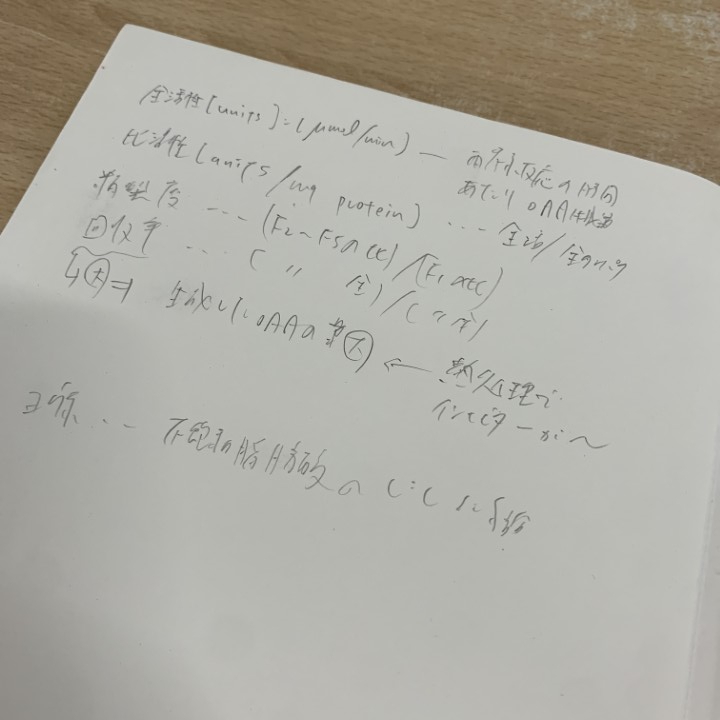 全活性[units]=(μmol/min) — 酵素反応の時間
あたり OAA
比活性[units/mg protein] ... 全活/全タンパク
精製度 ... (F2~F5の比)/(F1の比)
回収率 ... ( 〃 全)/( 〃 全)
↳(大)⇒ 生成した OAAの量(大) ← 熱処理で
インヒビターが〜
ヨウ素 ... 不飽和脂肪酸の C=C に付加